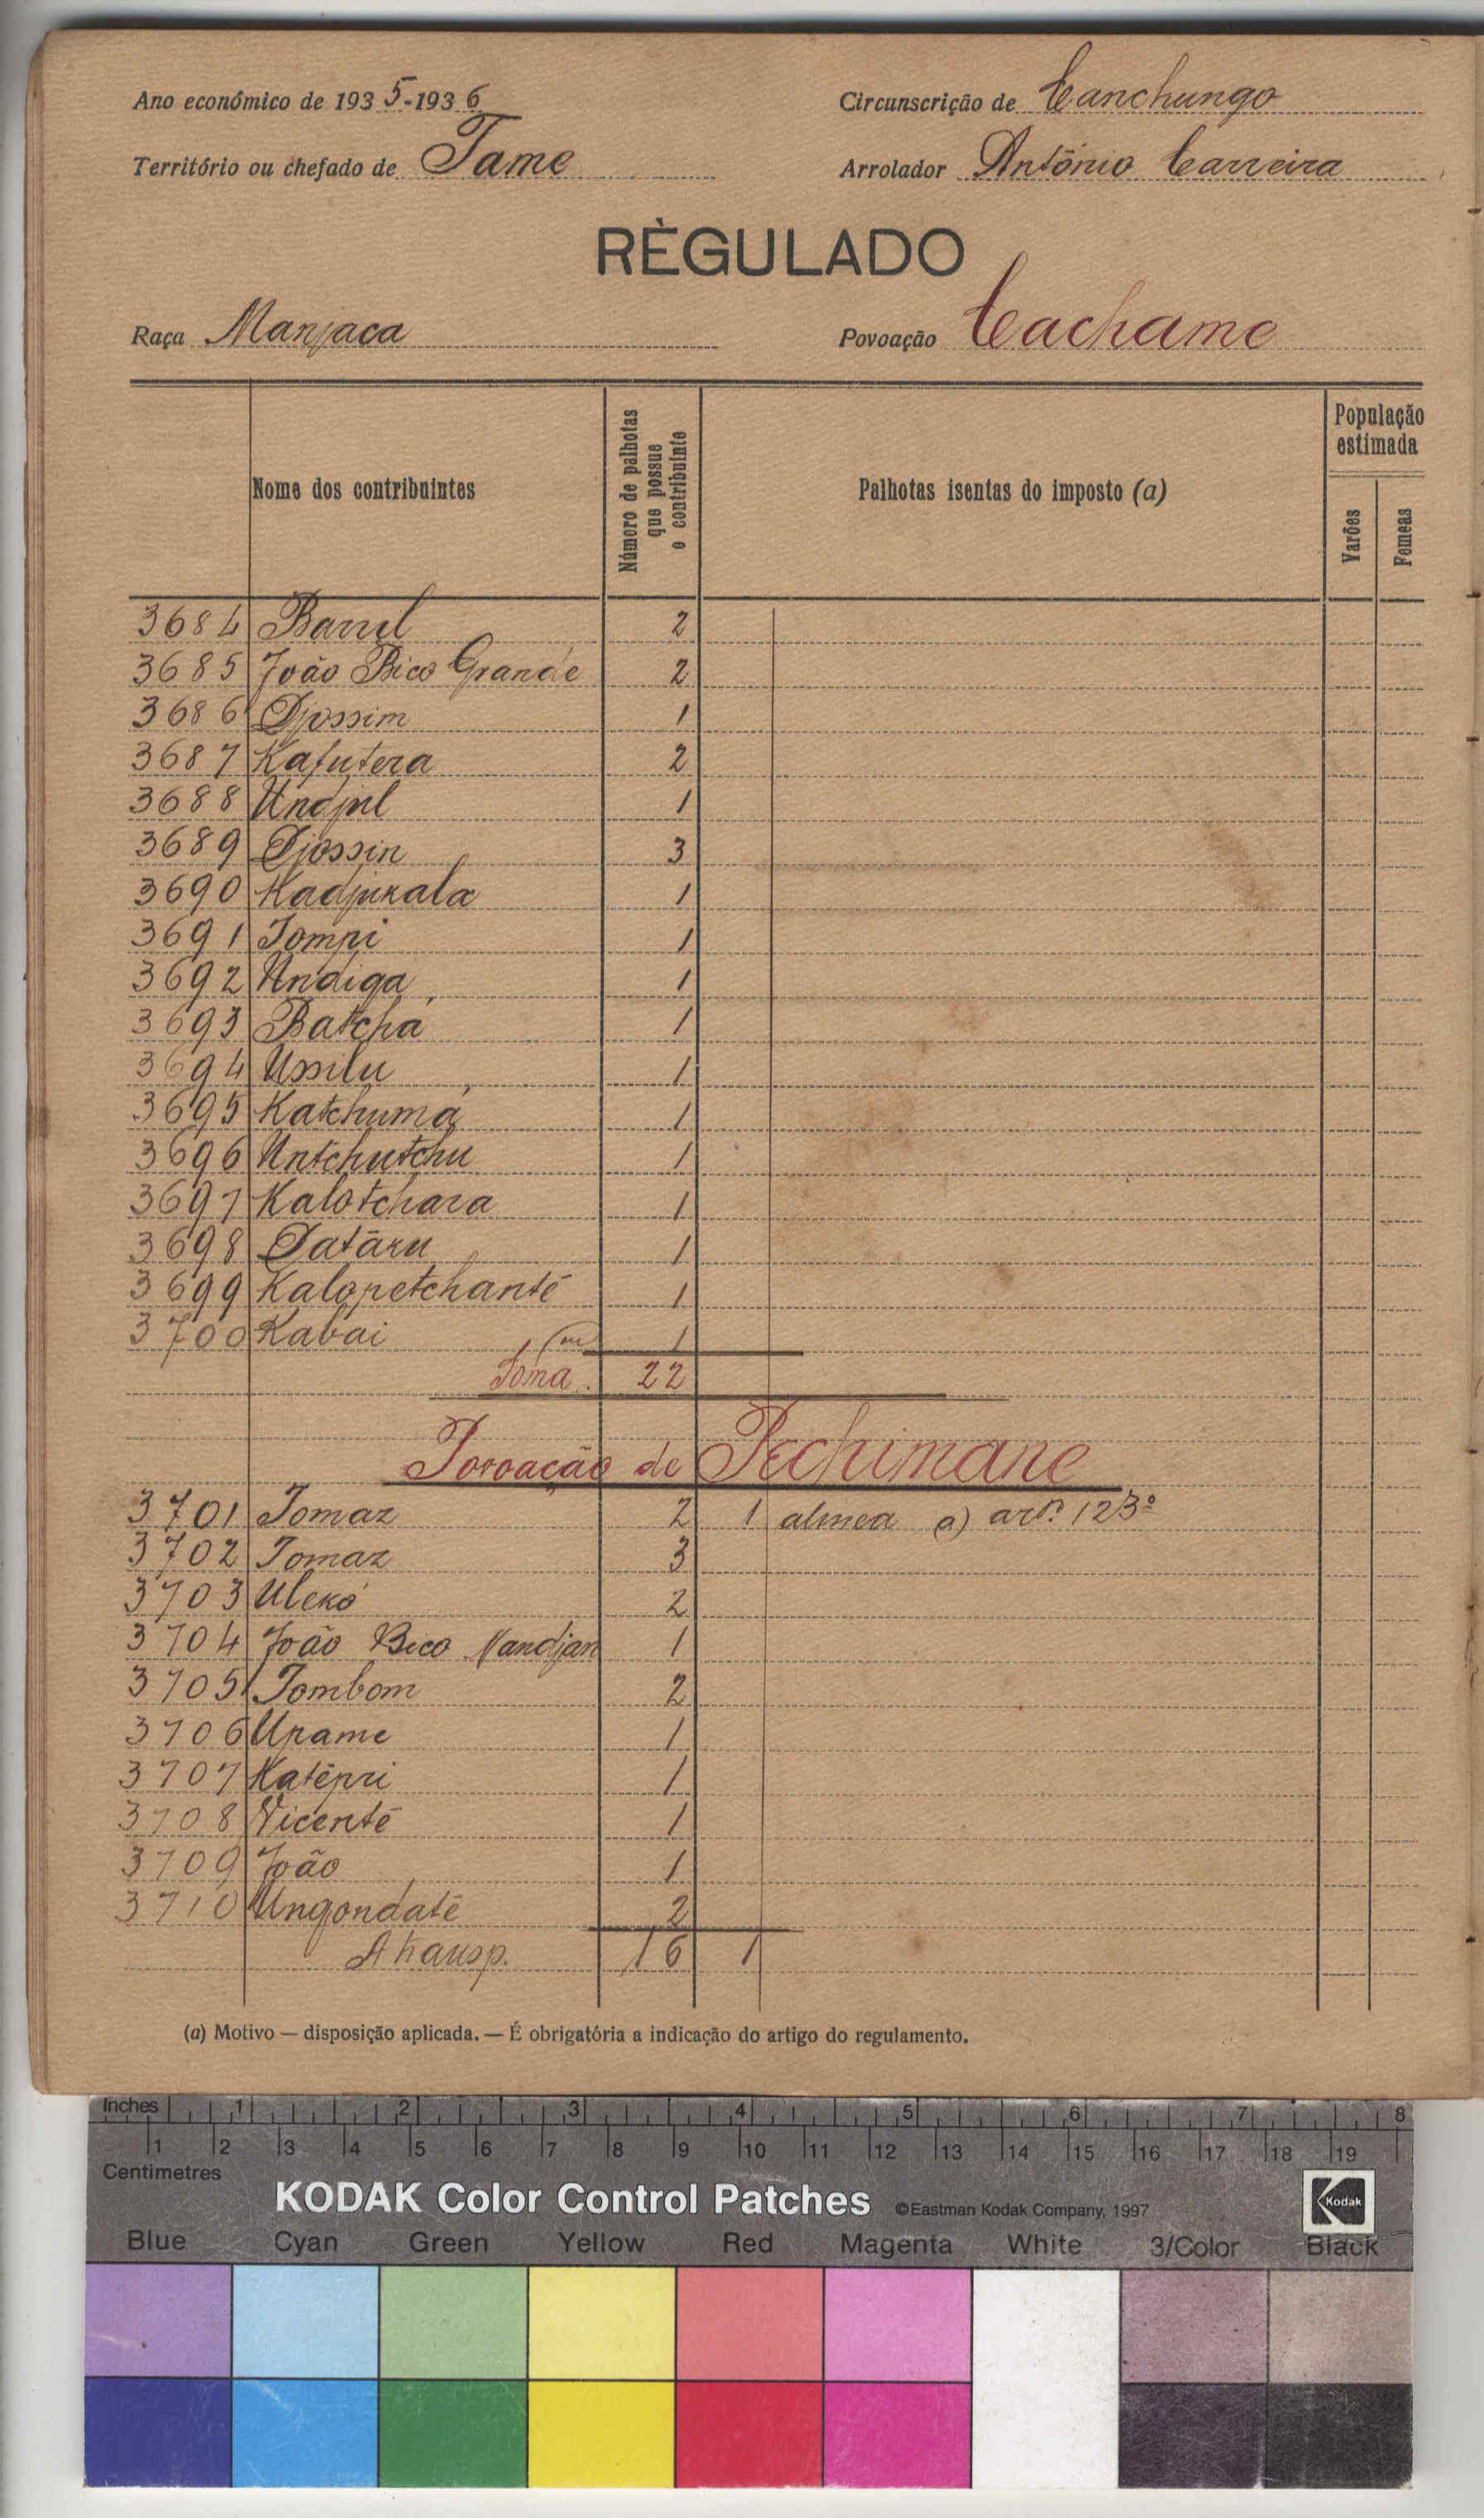 Ano económico de 1935-1936
Circunscrição de Canchungo
Território ou chefado de Tame
Arrolador António Carreira
RÈGULADO
Raça Manjaca
Povoação Cachame
Nome dos contribuintes
Número de palhotas que possue o contribuinte
Palhotas isentas do imposto (a)
População estimada
Varões
Femeas
3684 Barril 2
3685 João Bico Grande 2
3686 Djossim 1
3687 Kafutera 2
3688 Undjul 1
3689 Djossin 3
3690 Kadjukala 1
3691 Tompi 1
3692 Undiga 1
3693 Batchá 1
3694 Ussilu 1
3695 Katchumá 1
3696 Untchutchu 1
3697 Kalotchara 1
3698 Datáku 1
3699 Kalopetchanté 1
3700 Kabai 1
Soma. 22
Povoação de Pechimane
3701 Tomaz 2 1 a) artº 123º
3702 Tomaz 3
3703 Ulekó 2
3704 João Bico Nandjan 1
3705 Tombom 2
3706 Upame 1
3707 Katépri 1
3708 Vicenté 1
3709 João 1
3710 Ungondaté 2
A transp. 16 1
(a) Motivo — disposição aplicada. — É obrigatória a indicação do artigo do regulamento.
Inches 1 2 3 4 5 6 7 8
1 2 3 4 5 6 7 8 9 10 11 12 13 14 15 16 17 18 19
Centimetres
KODAK Color Control Patches ©Eastman Kodak Company, 1997 Kodak
Blue Cyan Green Yellow Red Magenta White 3/Color Black